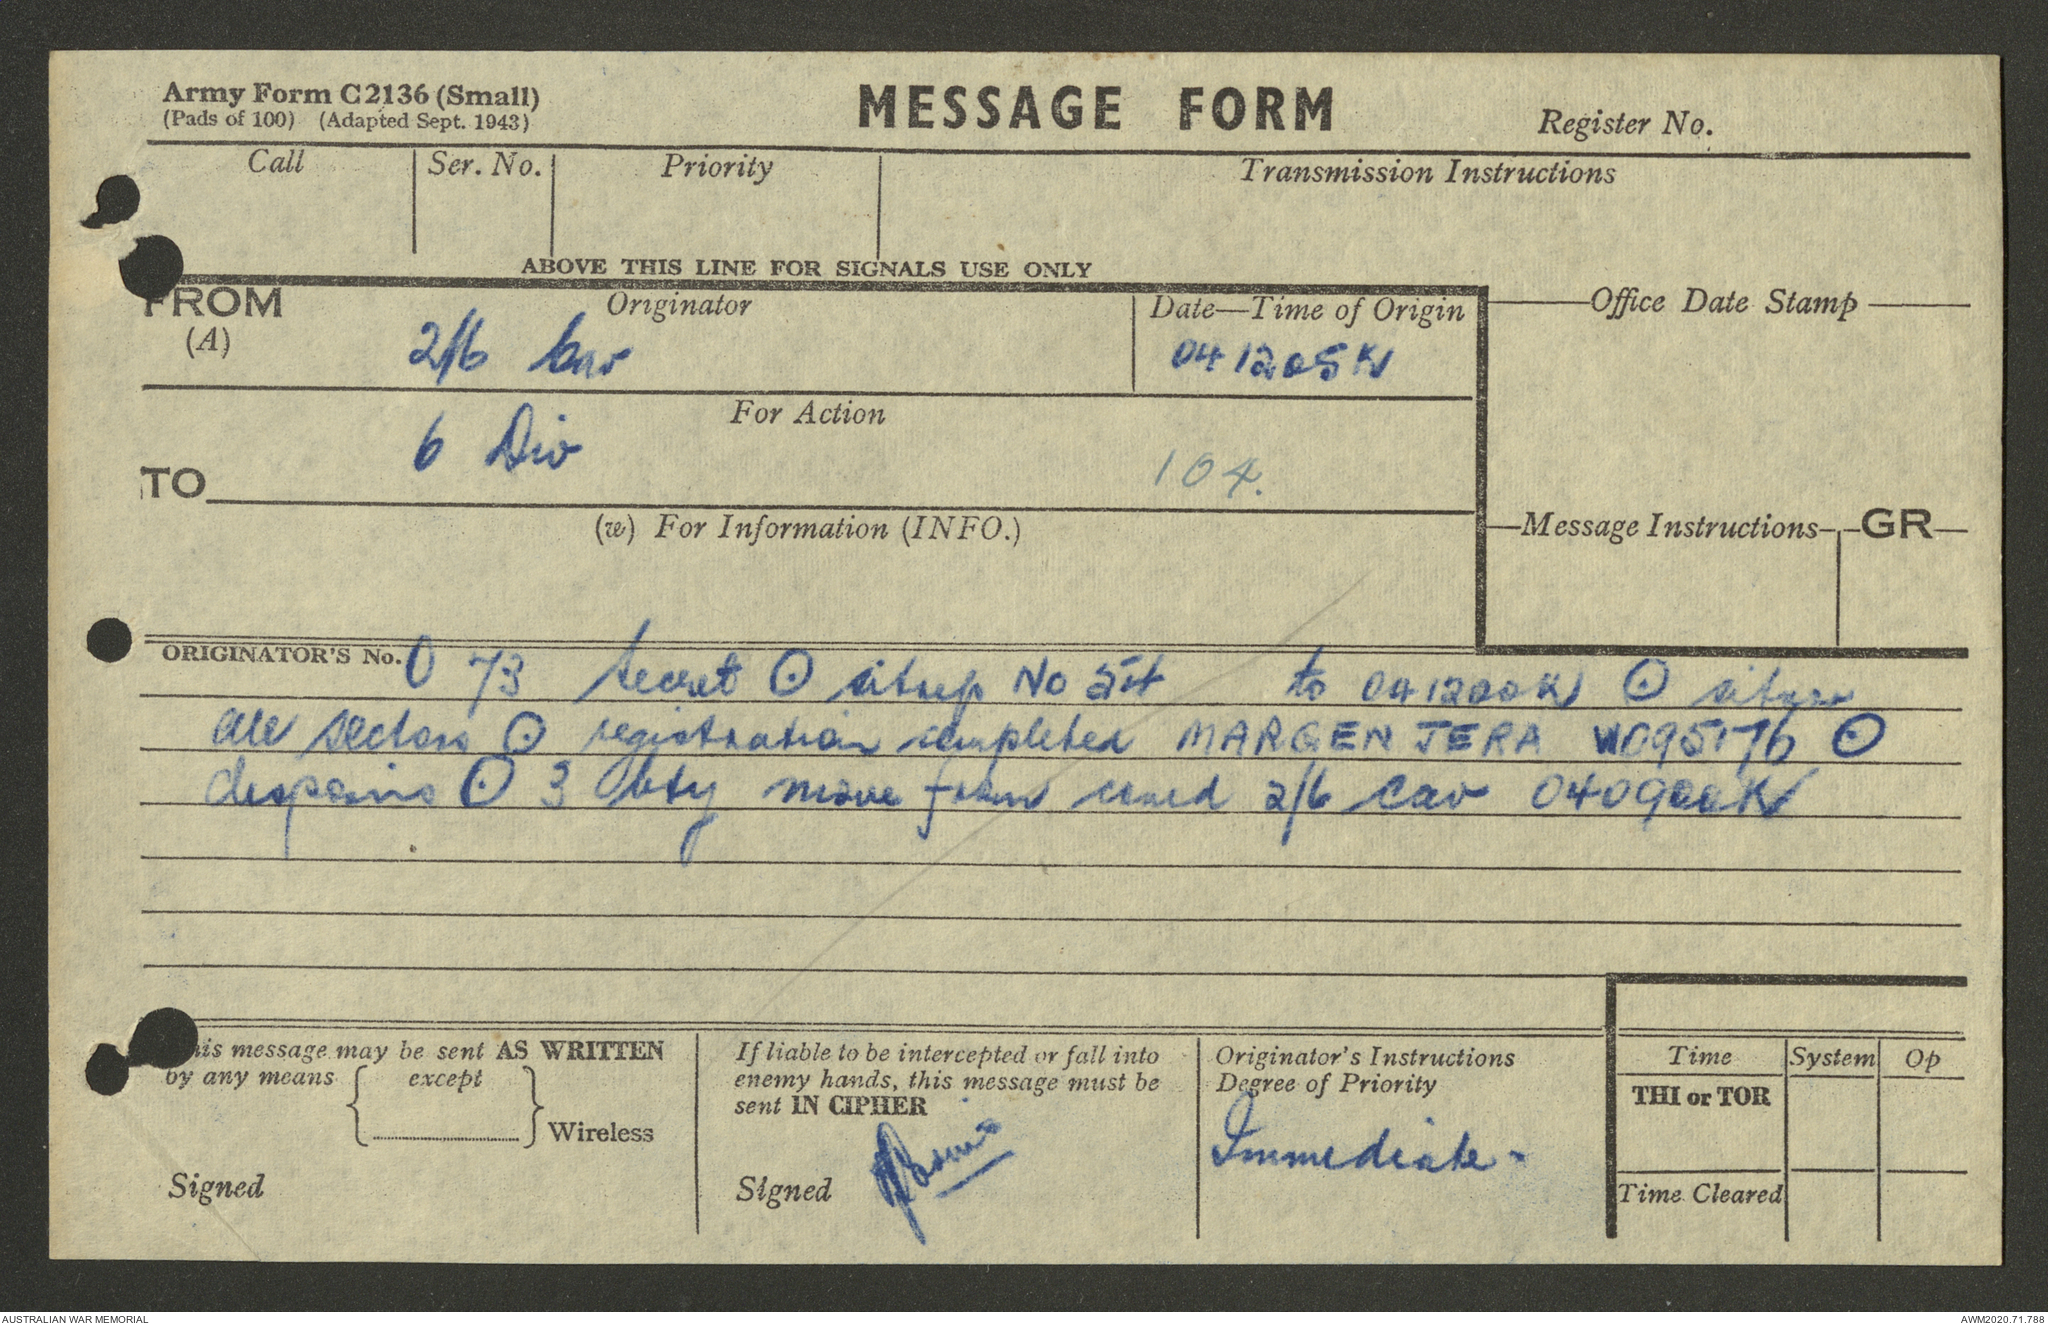 Army Form C2136 (Small)
(Pads of 100) (Adapted Sept. 1943)
MESSAGE FORM
Register No.
Call
Ser. No.
Priority
Transmission Instructions
ABOVE THIS LINE FOR SIGNALS USE ONLY
FROM
(A)
Originator
2/6 Cav
Date—Time of Origin
041205K
Office Date Stamp
For Action
6 Div
104.
TO
(w) For Information (INFO.)
Message Instructions
GR
ORIGINATOR'S No. O 73 Secret ⊙ sitrep No 54 to 041200K ⊙
all sectors ⊙ registration completed MARGEN JERA W095176 ⊙
dispositions ⊙ 3 bty move from comd 2/6 Cav 040900K
This message may be sent AS WRITTEN
by any means except
Wireless
Signed
If liable to be intercepted or fall into
enemy hands, this message must be
sent IN CIPHER
Signed
Originator's Instructions
Degree of Priority
Immediate -
Time
System
Op
THI or TOR
Time Cleared
AUSTRALIAN WAR MEMORIAL
AWM2020.71.788